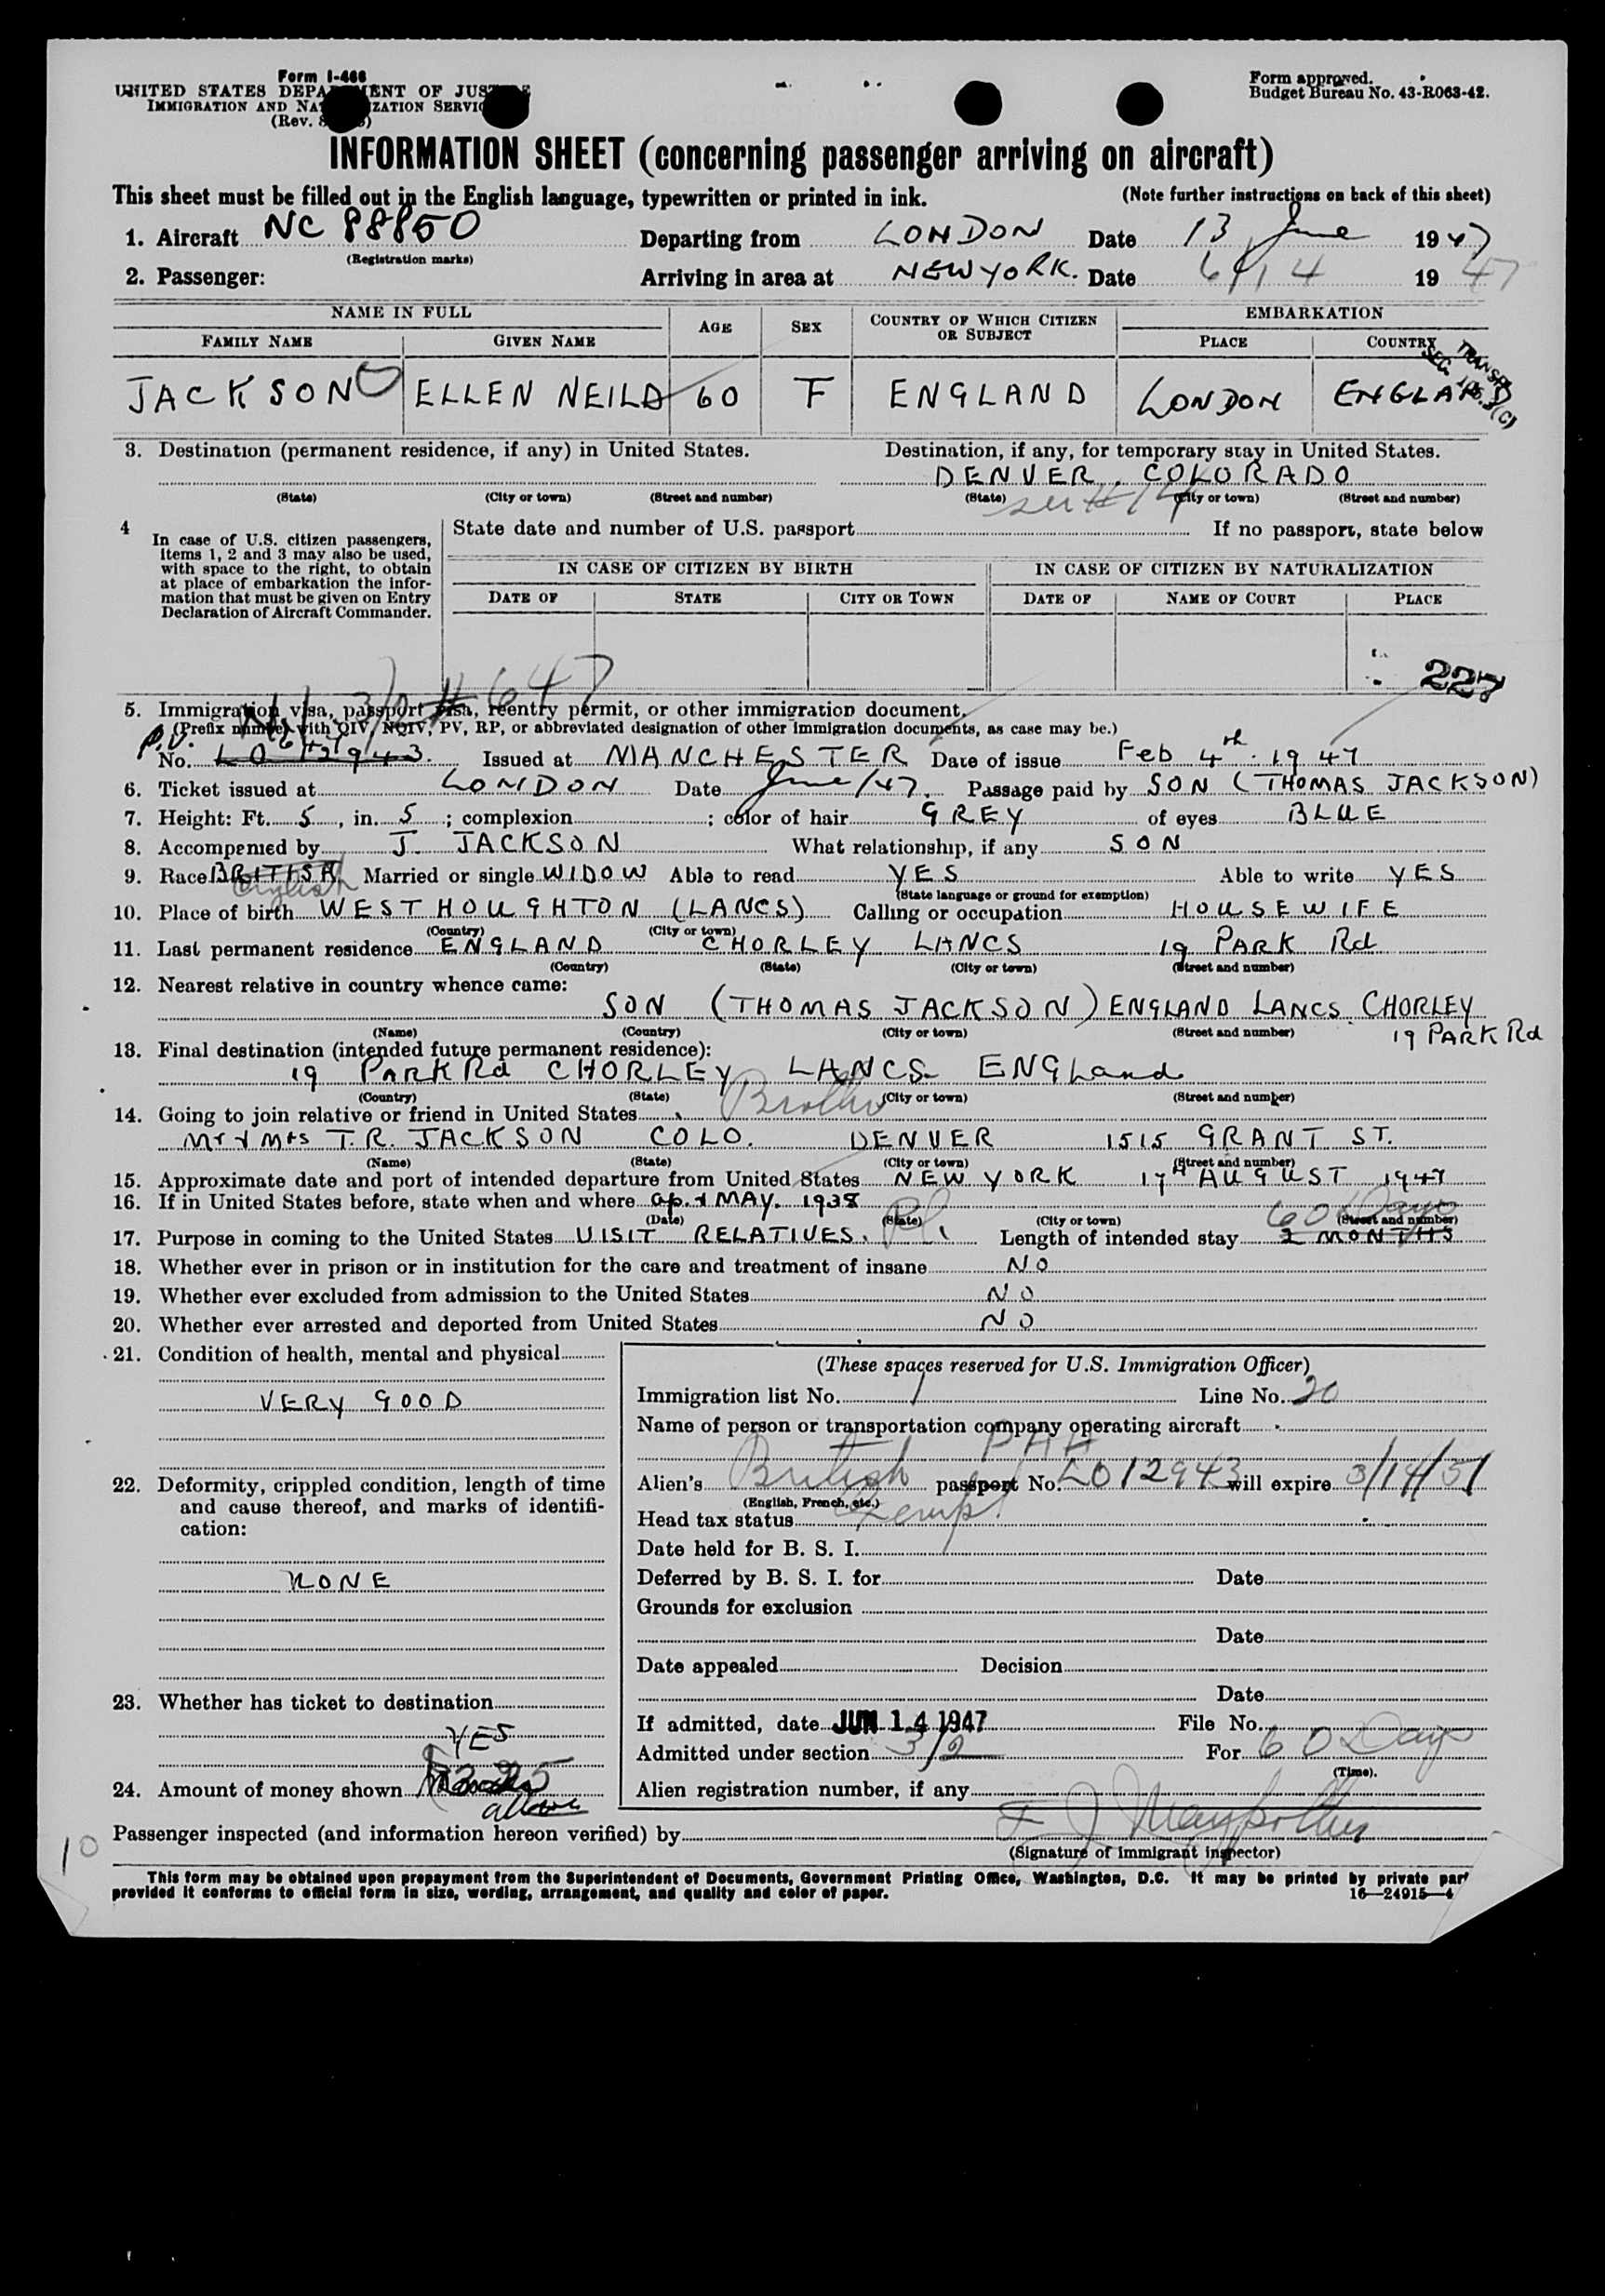 Form I-466
UNITED STATES DEPARTMENT OF JUSTICE
IMMIGRATION AND NATURALIZATION SERVICE
(Rev.
Form approved.
Budget Bureau No. 43-R063-42.
INFORMATION SHEET (concerning passenger arriving on aircraft)
This sheet must be filled out in the English language, typewritten or printed in ink. (Note further instructions on back of this sheet)
1. Aircraft NC 88850 Departing from LONDON Date 13 June 1947
(Registration marks)
2. Passenger: Arriving in area at NEW YORK. Date 6/14 1947
NAME IN FULL AGE SEX COUNTRY OF WHICH CITIZEN OR SUBJECT EMBARKATION
FAMILY NAME GIVEN NAME PLACE COUNTRY
TRANSP.
SEC.
JACKSON ELLEN NEILD 60 F ENGLAND LONDON ENGLAND
3. Destination (permanent residence, if any) in United States. Destination, if any, for temporary stay in United States.
DENVER, COLORADO
(State) (City or town) (Street and number) (State) (City or town) (Street and number)
4 In case of U.S. citizen passengers, items 1, 2 and 3 may also be used, with space to the right, to obtain at place of embarkation the information that must be given on Entry Declaration of Aircraft Commander.
State date and number of U.S. passport If no passport, state below
IN CASE OF CITIZEN BY BIRTH IN CASE OF CITIZEN BY NATURALIZATION
DATE OF STATE CITY OR TOWN DATE OF NAME OF COURT PLACE
227
3/2 # 647
5. Immigration visa, passport visa, reentry permit, or other immigration document.
(Prefix number with QIV, NQIV, PV, RP, or abbreviated designation of other immigration documents, as case may be.)
P.V.
No. LO 12943. Issued at MANCHESTER Date of issue Feb 4th 1947
6. Ticket issued at LONDON Date June/47. Passage paid by SON (THOMAS JACKSON)
7. Height: Ft. 5, in. 5; complexion ; color of hair GREY of eyes BLUE
8. Accompanied by J. JACKSON What relationship, if any SON
9. Race BRITISH English Married or single WIDOW Able to read YES Able to write YES
(State language or ground for exemption)
10. Place of birth WESTHOUGHTON (LANCS) Calling or occupation HOUSEWIFE
(Country) (City or town)
11. Last permanent residence ENGLAND CHORLEY LANCS 19 PARK Rd
(Country) (State) (City or town) (Street and number)
12. Nearest relative in country whence came:
SON (THOMAS JACKSON) ENGLAND LANCS. CHORLEY
(Name) (Country) (City or town) (Street and number) 19 PARK Rd
13. Final destination (intended future permanent residence):
19 PARK Rd CHORLEY LANCS. ENGLand
(Country) (State) (City or town) (Street and number)
14. Going to join relative or friend in United States Brother
Mr & Mrs T.R. JACKSON COLO. DENVER 1515 GRANT ST.
(Name) (State) (City or town) (Street and number)
15. Approximate date and port of intended departure from United States NEW YORK 17th AUGUST 1947
16. If in United States before, state when and where Ap. & MAY. 1938
(Date) (State) (City or town) (Street and number)
60 Days
17. Purpose in coming to the United States VISIT RELATIVES. Length of intended stay 2 MONTHS
18. Whether ever in prison or in institution for the care and treatment of insane NO
19. Whether ever excluded from admission to the United States NO
20. Whether ever arrested and deported from United States NO
21. Condition of health, mental and physical
VERY GOOD
22. Deformity, crippled condition, length of time and cause thereof, and marks of identification:
NONE
23. Whether has ticket to destination
YES
24. Amount of money shown
(These spaces reserved for U.S. Immigration Officer)
Immigration list No. 1 Line No. 20
Name of person or transportation company operating aircraft
PAA
Alien's British passport No. LO12943 will expire 3/14/51
(English, French, etc.)
Head tax status Exempt
Date held for B. S. I.
Deferred by B. S. I. for Date
Grounds for exclusion
Date
Date appealed Decision
Date
If admitted, date JUN 14 1947 File No.
Admitted under section 3/2 For 60 Days
(Time).
Alien registration number, if any
10
Passenger inspected (and information hereon verified) by
(Signature of immigrant inspector)
This form may be obtained upon prepayment from the Superintendent of Documents, Government Printing Office, Washington, D.C. It may be printed by private part
provided it conforms to official form in size, wording, arrangement, and quality and color of paper. 16—24915—4